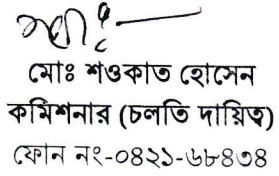 মোঃ শওকাত হোসেন
কমিশনার (চলতি দায়িত্ব)
ফোন নং-০৪২১-৬৮৪৩৪